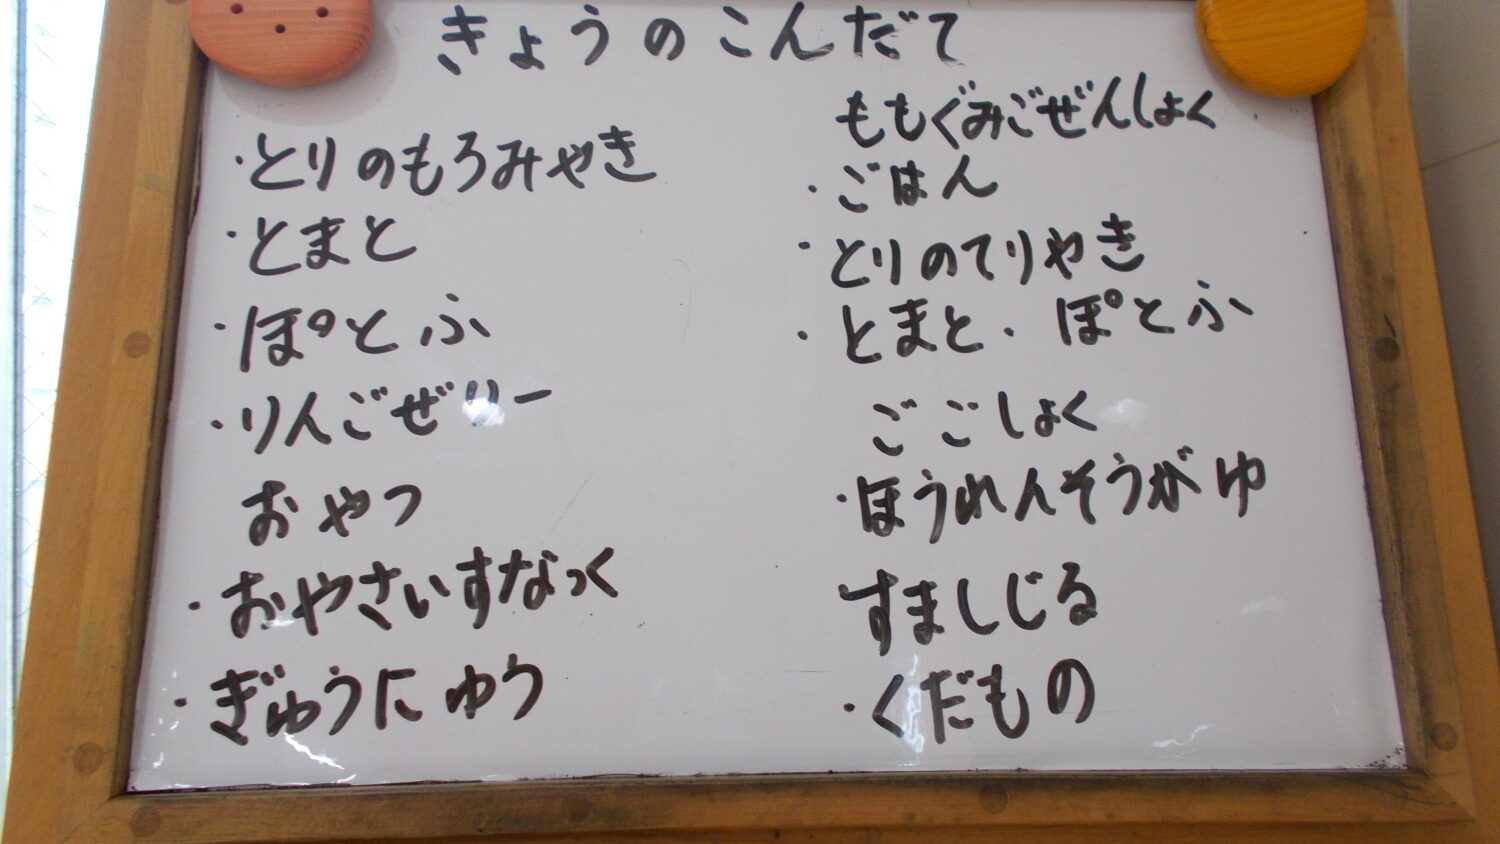 きょうのこんだて
・とりのもろみやき
・とまと
・ぽとふ
・りんごぜりー
おやつ
・おやさいすなっく
・ぎゅうにゅう
ももぐみごぜんしょく
・ごはん
・とりのてりやき
・とまと・ぽとふ
ごごしょく
・ほうれんそうがゆ
すましじる
・くだもの